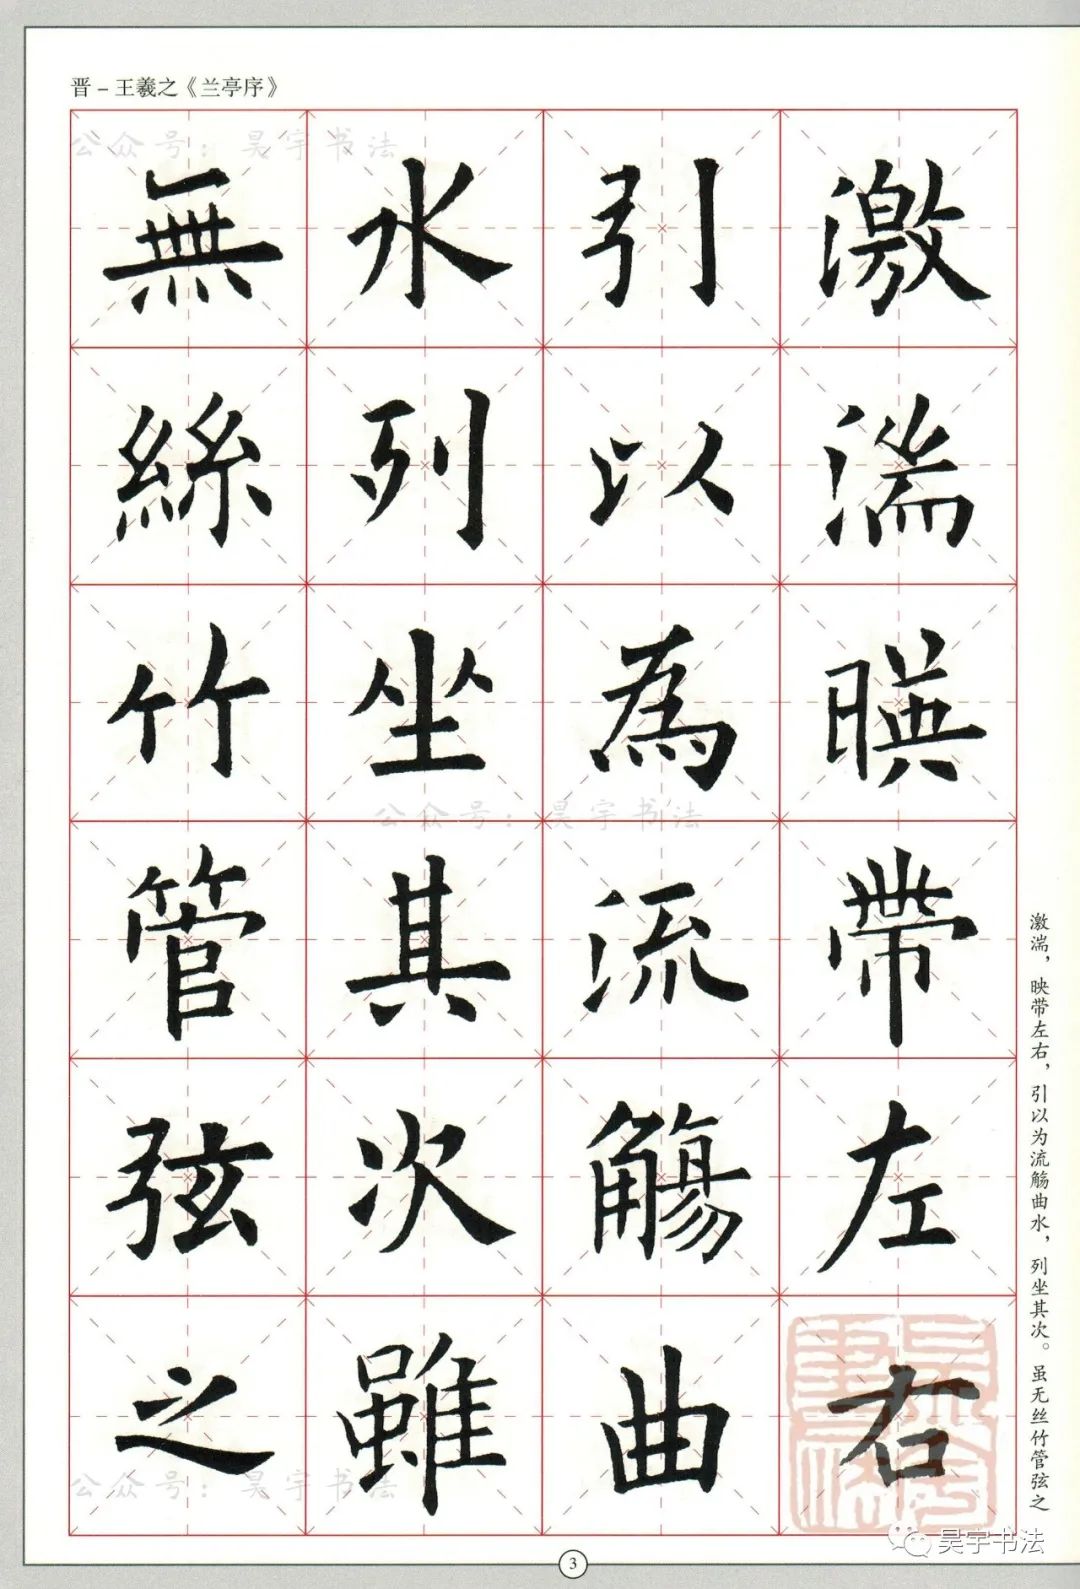 晋－王羲之《兰亭序》
公众号：昊宇书法
激湍暎帶左右
引以為流觴曲
水列坐其次雖
無絲竹管弦之
激湍，映带左右，引以为流觞曲水，列坐其次。虽无丝竹管弦之
公众号：昊宇书法
公众号：昊宇书法
昊宇书法
3